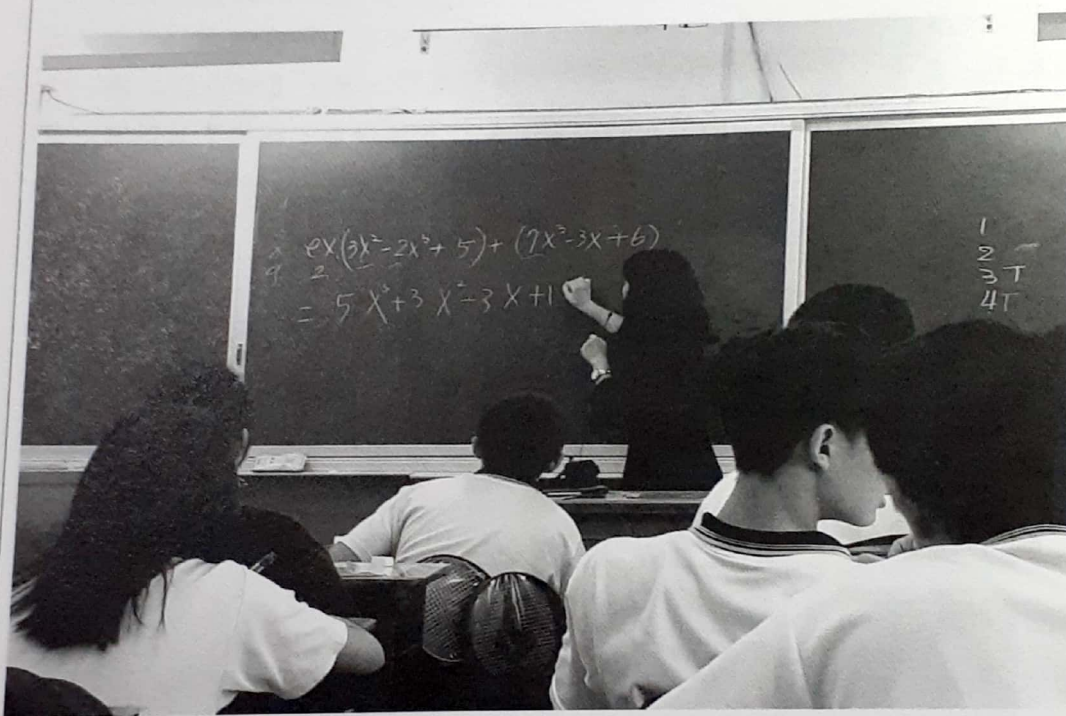 ex.(3x²-2x³+5)+(7x³-3x+6)
2
= 5x³+3x²-3x+1
1
2 -
3 T
4 T